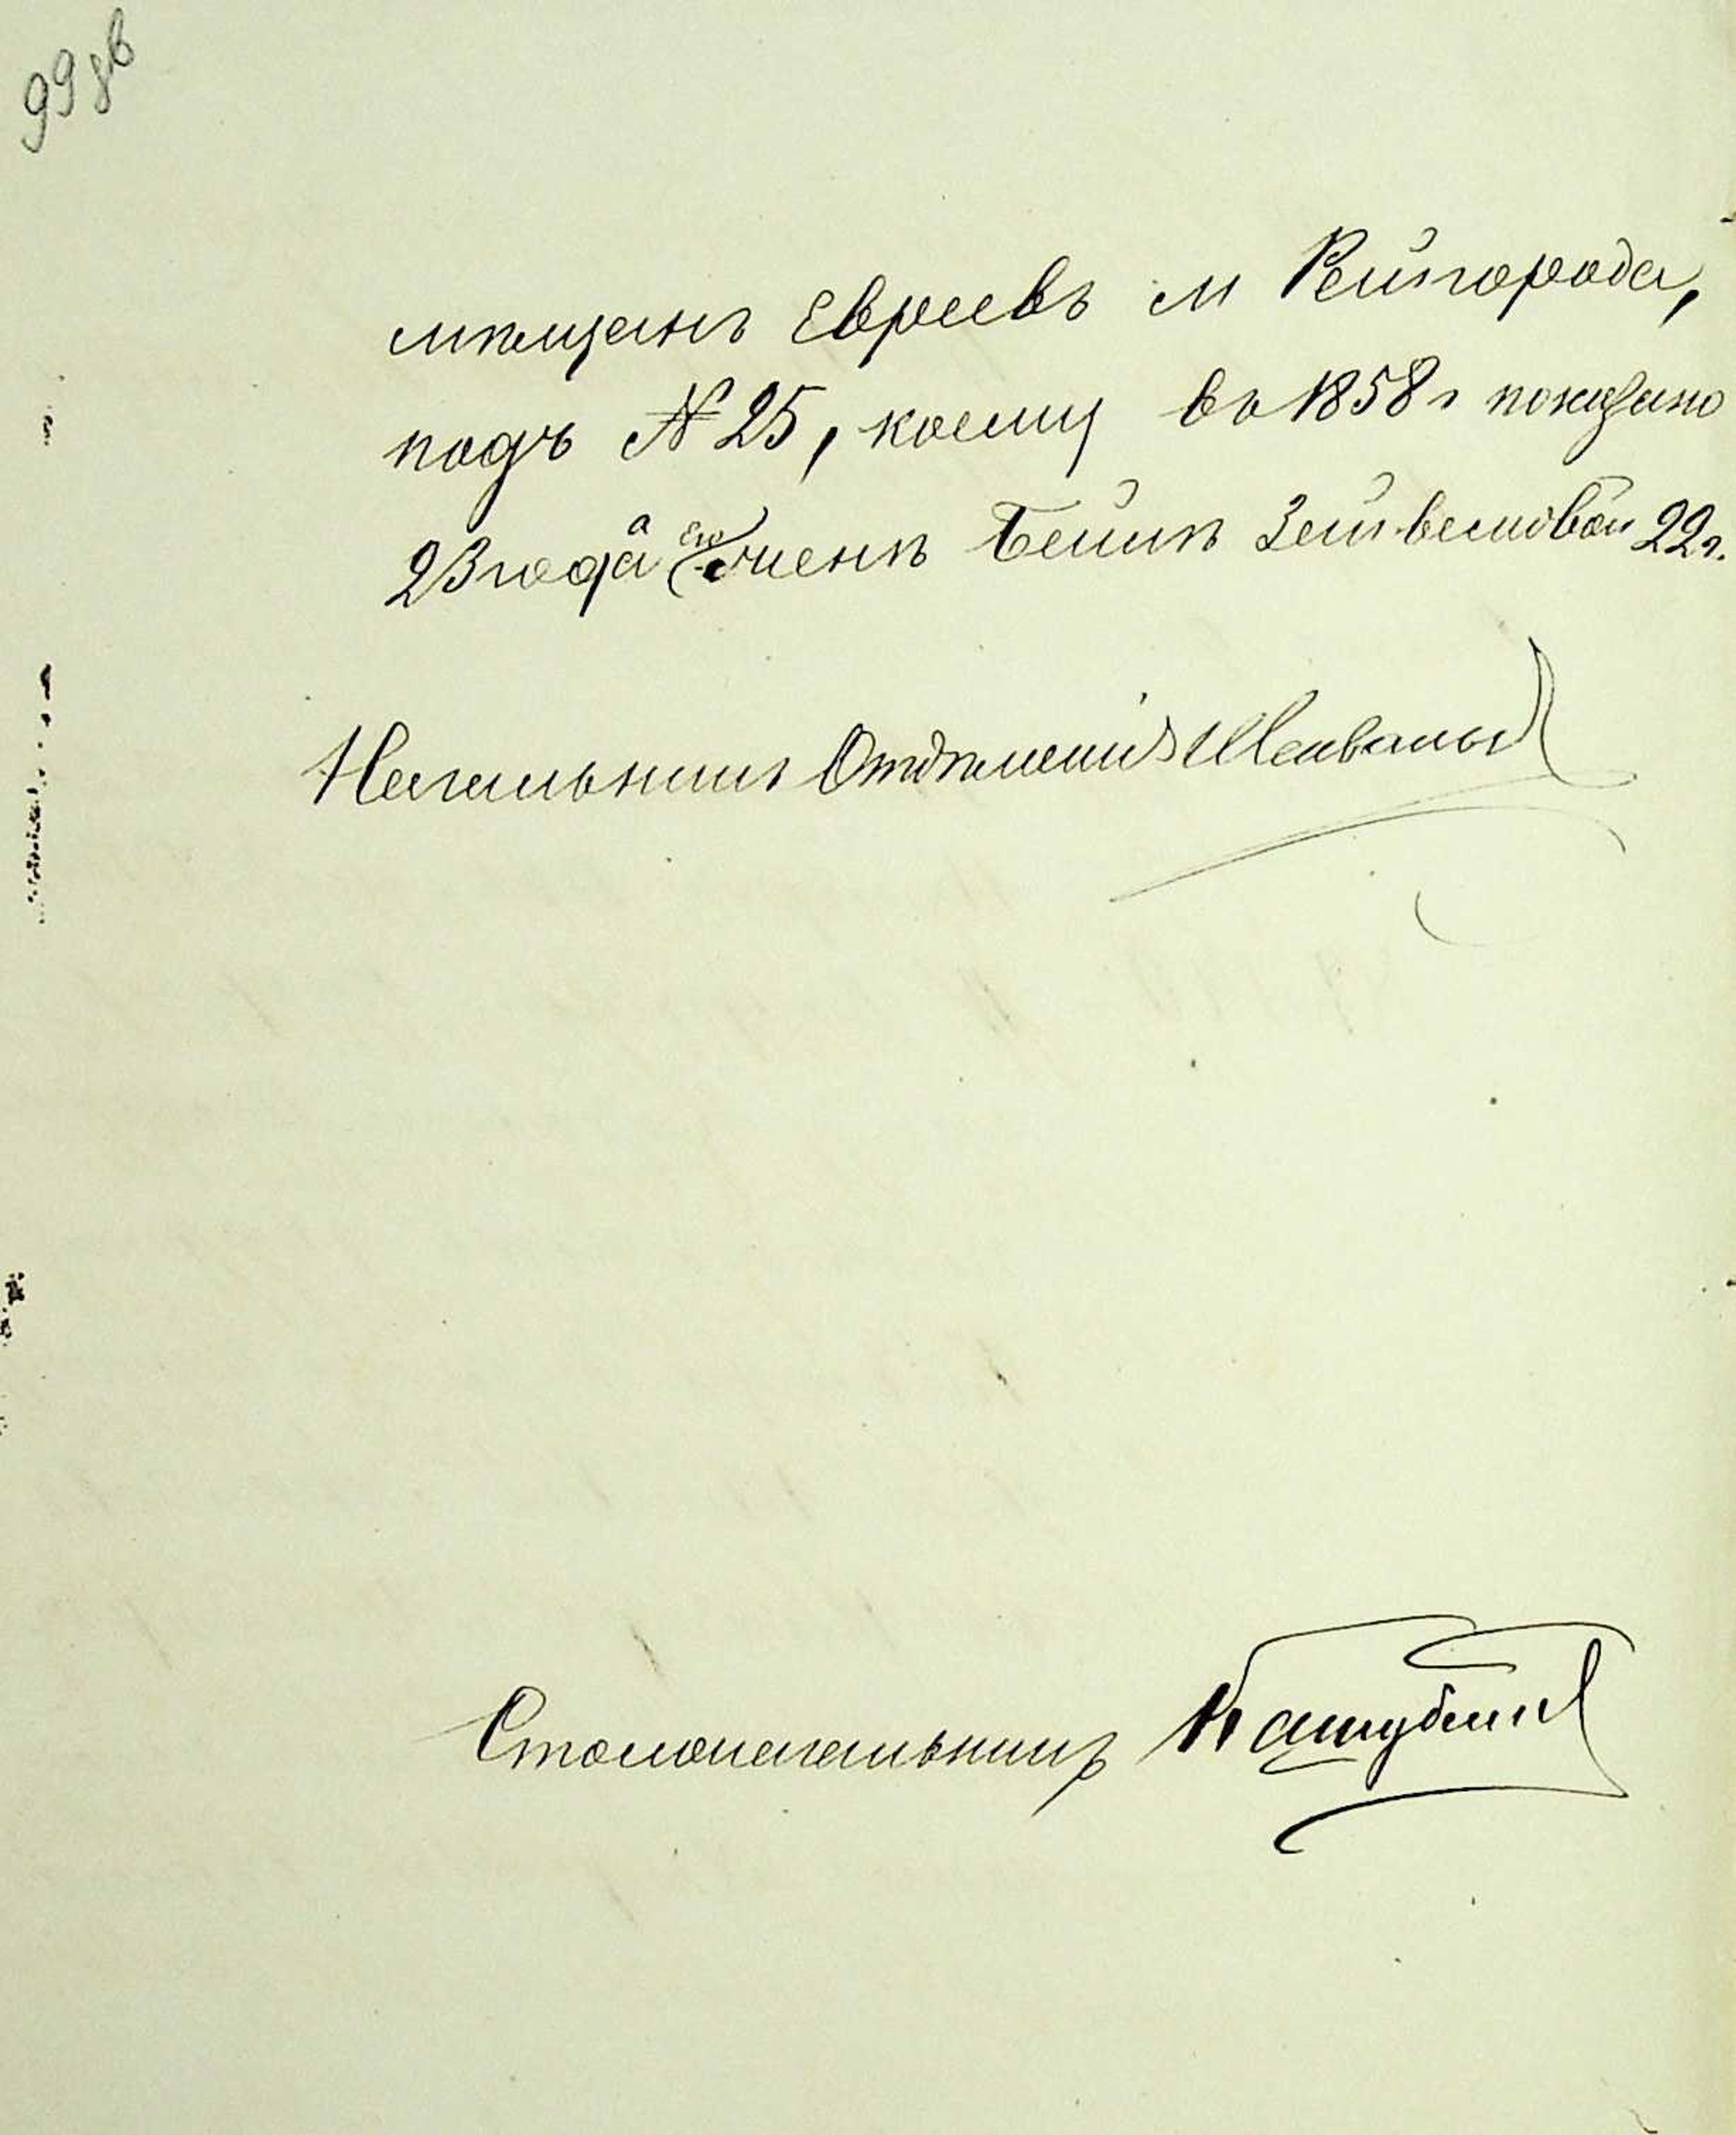 99 об
мѣщанъ Евреевъ м Рейгорода,
подъ № 25, коему въ 1858 г показано
23 года а его женѣ Бейлѣ Зейвелиовой 22 г.
Начальникъ Отдѣленія
Столоначальникъ